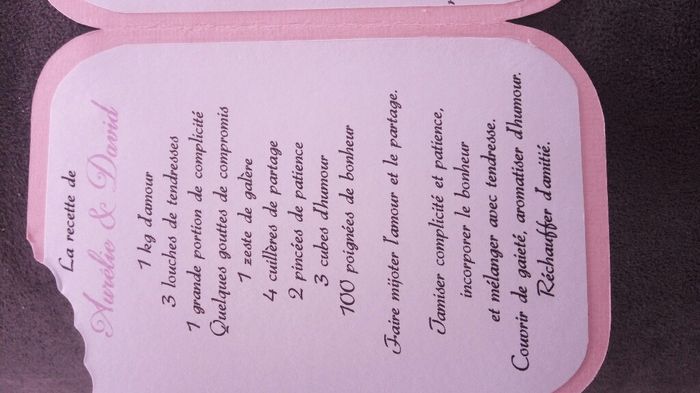 La recette de
Aurélie & David
1 kg d'amour
3 louches de tendresses
1 grande portion de complicité
Quelques gouttes de compromis
1 zeste de galère
4 cuillères de partage
2 pincées de patience
3 cubes d'humour
100 poignées de bonheur
Faire mijoter l'amour et le partage.
Tamiser complicité et patience,
incorporer le bonheur
et mélanger avec tendresse.
Couvrir de gaieté, aromatiser d'humour.
Réchauffer d'amitié.